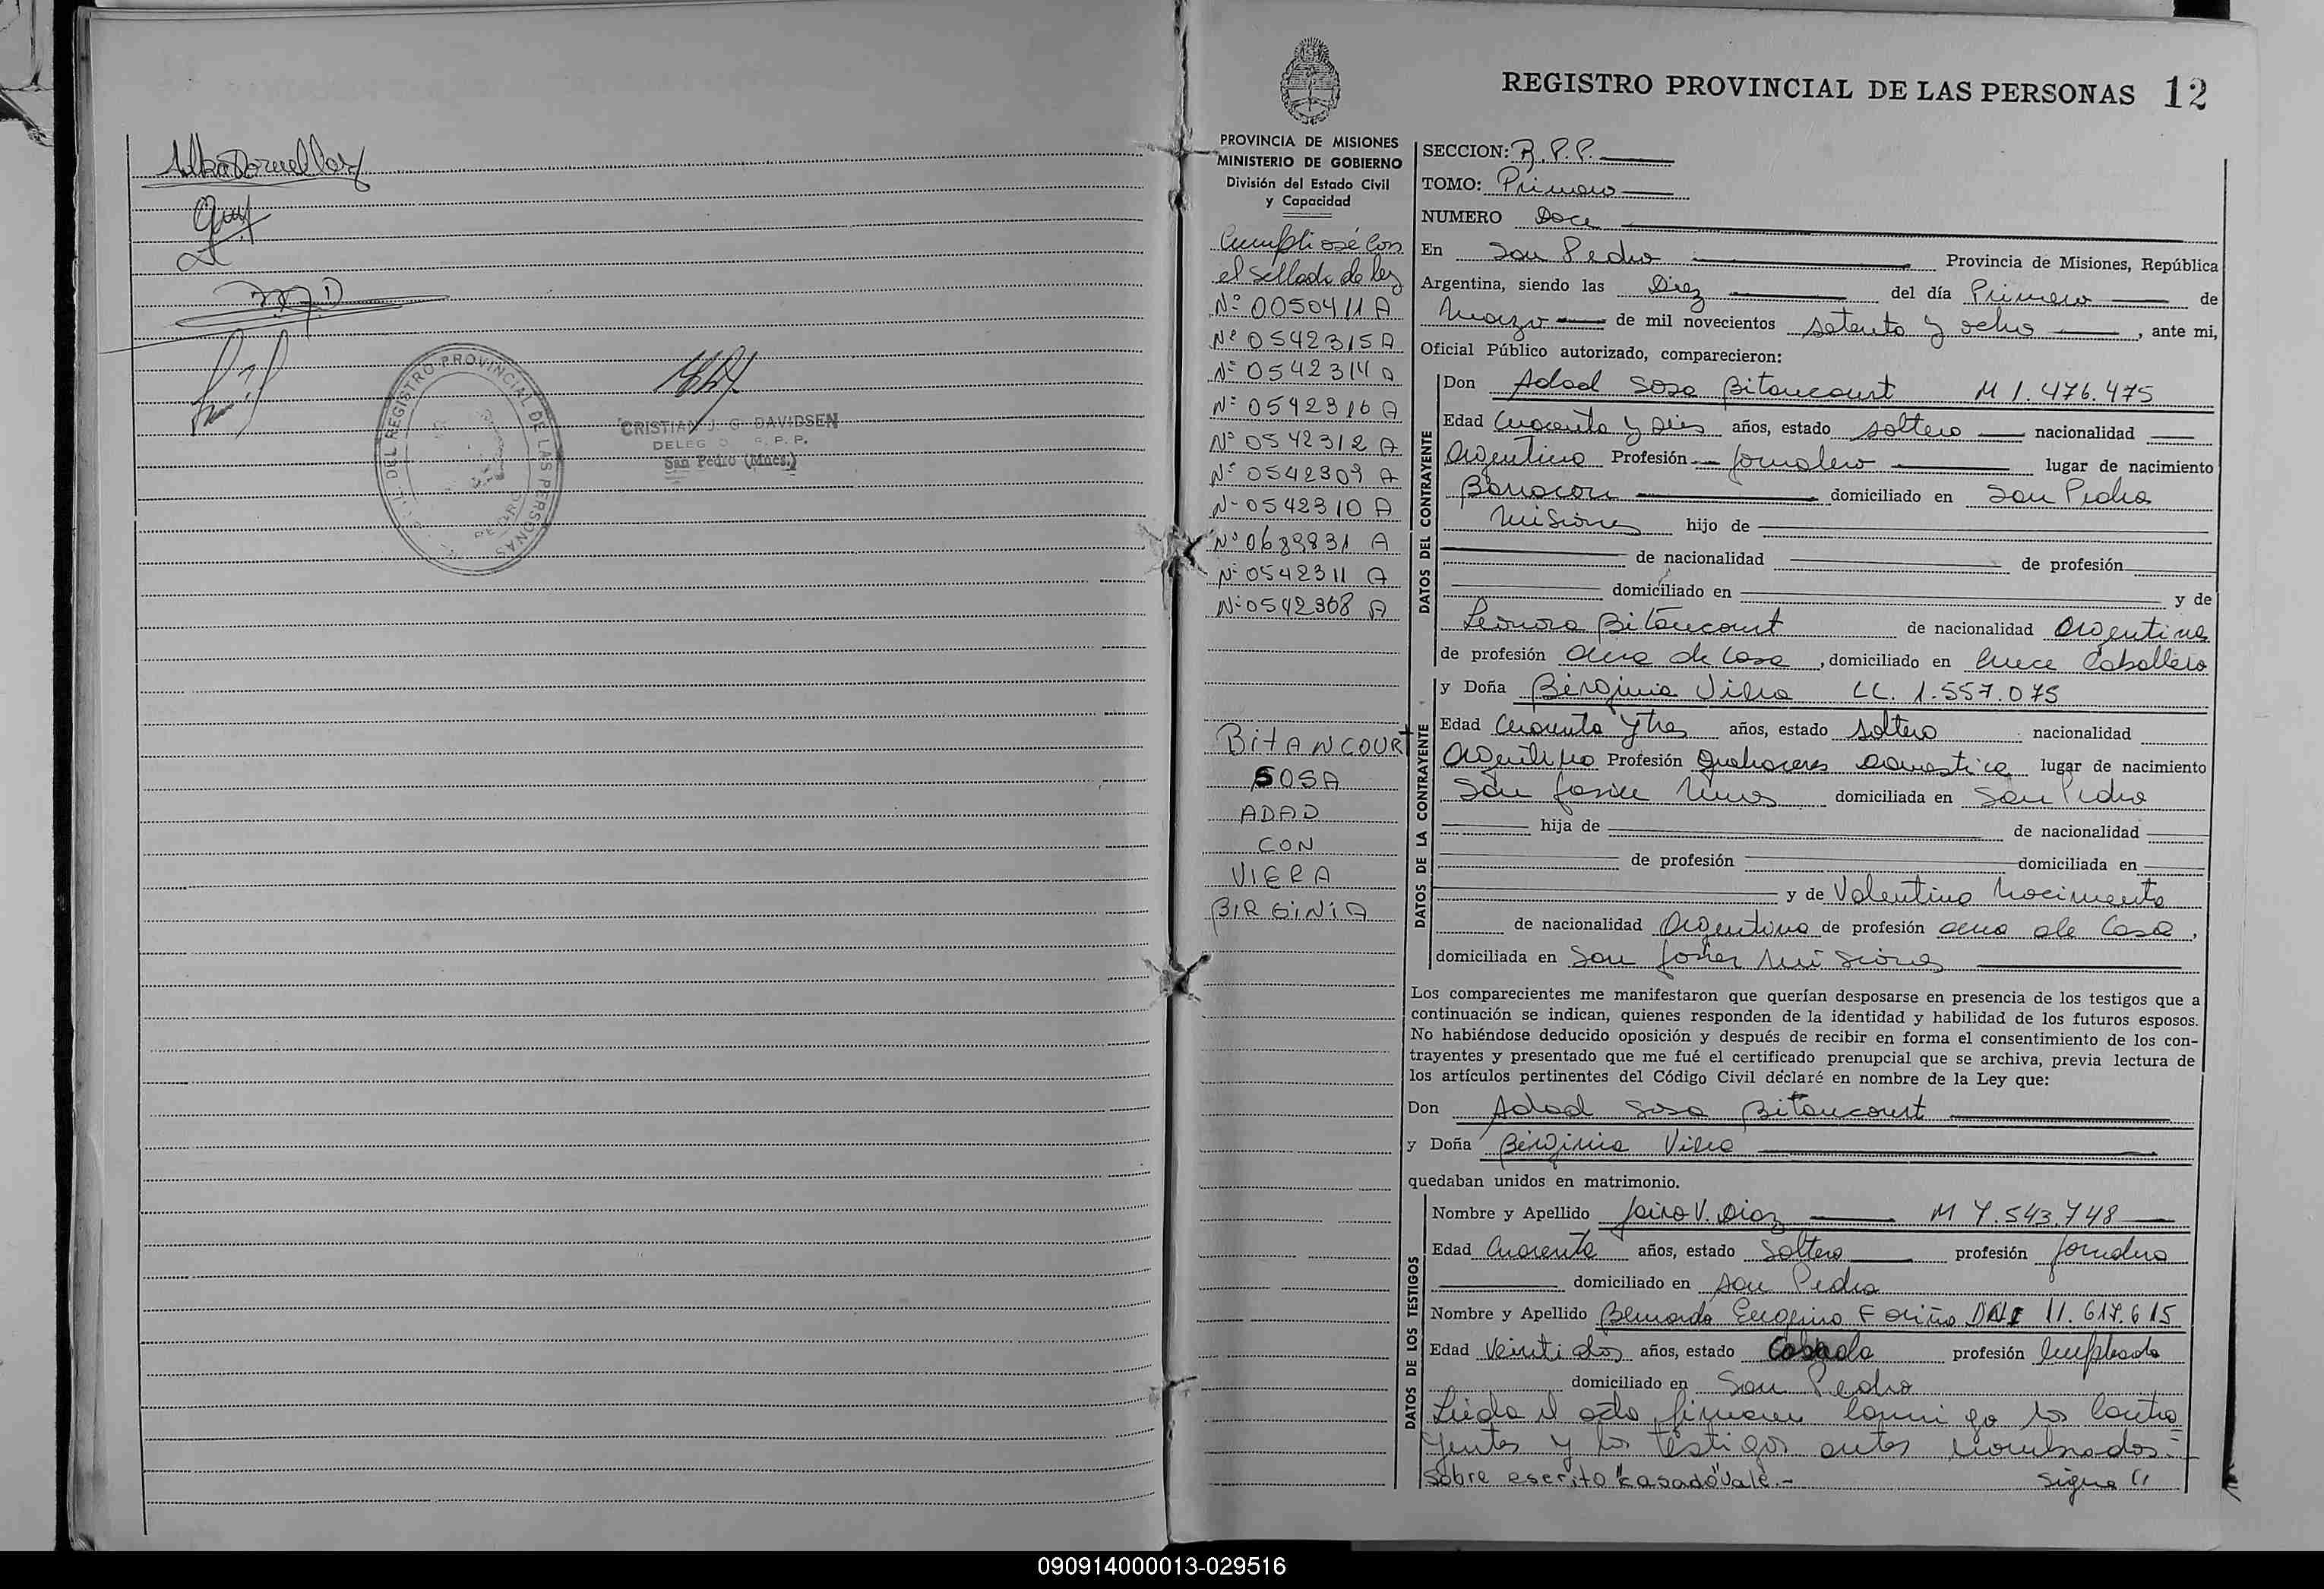 CRISTIAN J. G. DAVIDSEN
DELEG R. P. P.
San Pedro (Mnes.)
DEL REGISTRO PROVINCIAL DE LAS PERSONAS
REGISTRO PROVINCIAL DE LAS PERSONAS 12
PROVINCIA DE MISIONES
MINISTERIO DE GOBIERNO
División del Estado Civil
y Capacidad
el sellado de ley
Nº 0050411 A
Nº 0542315 A
Nº 0542314 A
Nº 0542316 A
Nº 0542312 A
Nº 0542309 A
Nº 0542310 A
Nº 0689831 A
Nº 0542311 A
Nº 0542308 A
BITANCOURT
SOSA
ADAD
CON
VIERA
BIRGINIA
SECCION: R.P.P.
TOMO: Primero
NUMERO Doce
En San Pedro Provincia de Misiones, República
Argentina, siendo las Diez del día Primero de
Marzo de mil novecientos setenta y ocho, ante mi,
Oficial Público autorizado, comparecieron:
DATOS DEL CONTRAYENTE
Don Adad Sosa Bitancourt M 1.476.475
Edad Cuarenta y años, estado soltero nacionalidad
Argentina Profesión Jornalero lugar de nacimiento
Barracon domiciliado en San Pedro
Misiones hijo de
de nacionalidad de profesión
domiciliado en y de
Leonora Bitancourt de nacionalidad Argentina
de profesión Ama de Casa, domiciliado en Cruce Caballero
DATOS DE LA CONTRAYENTE
y Doña Birginia Viera L.C. 1.557.075
Edad Cuarenta y tres años, estado soltera nacionalidad
Argentina Profesión Quehaceres Domestica lugar de nacimiento
San Javier Mnes domiciliada en San Pedro
hija de de nacionalidad
de profesión domiciliada en
y de Valentina Nocimento
de nacionalidad Argentina de profesión ama de Casa,
domiciliada en San Javier Misiones
Los comparecientes me manifestaron que querían desposarse en presencia de los testigos que a
continuación se indican, quienes responden de la identidad y habilidad de los futuros esposos.
No habiéndose deducido oposición y después de recibir en forma el consentimiento de los con-
trayentes y presentado que me fué el certificado prenupcial que se archiva, previa lectura de
los artículos pertinentes del Código Civil declaré en nombre de la Ley que:
Don Adad Sosa Bitancourt
y Doña Birginia Viera
quedaban unidos en matrimonio.
DATOS DE LOS TESTIGOS
Nombre y Apellido Jairo V. Diaz M 7.543.748
Edad Cuarenta años, estado Soltero profesión Jornalero
domiciliado en San Pedro
Nombre y Apellido Bernardo Eugenio Fariña DNI 11.617.615
Edad Veintidos años, estado Casado profesión Empleado
domiciliado en San Pedro
Leida el acta, firman conmigo los Contra
yentes y los testigos antes nombrados.-
Sobre escrito "casado" Vale.- Sigue //
090914000013-029516